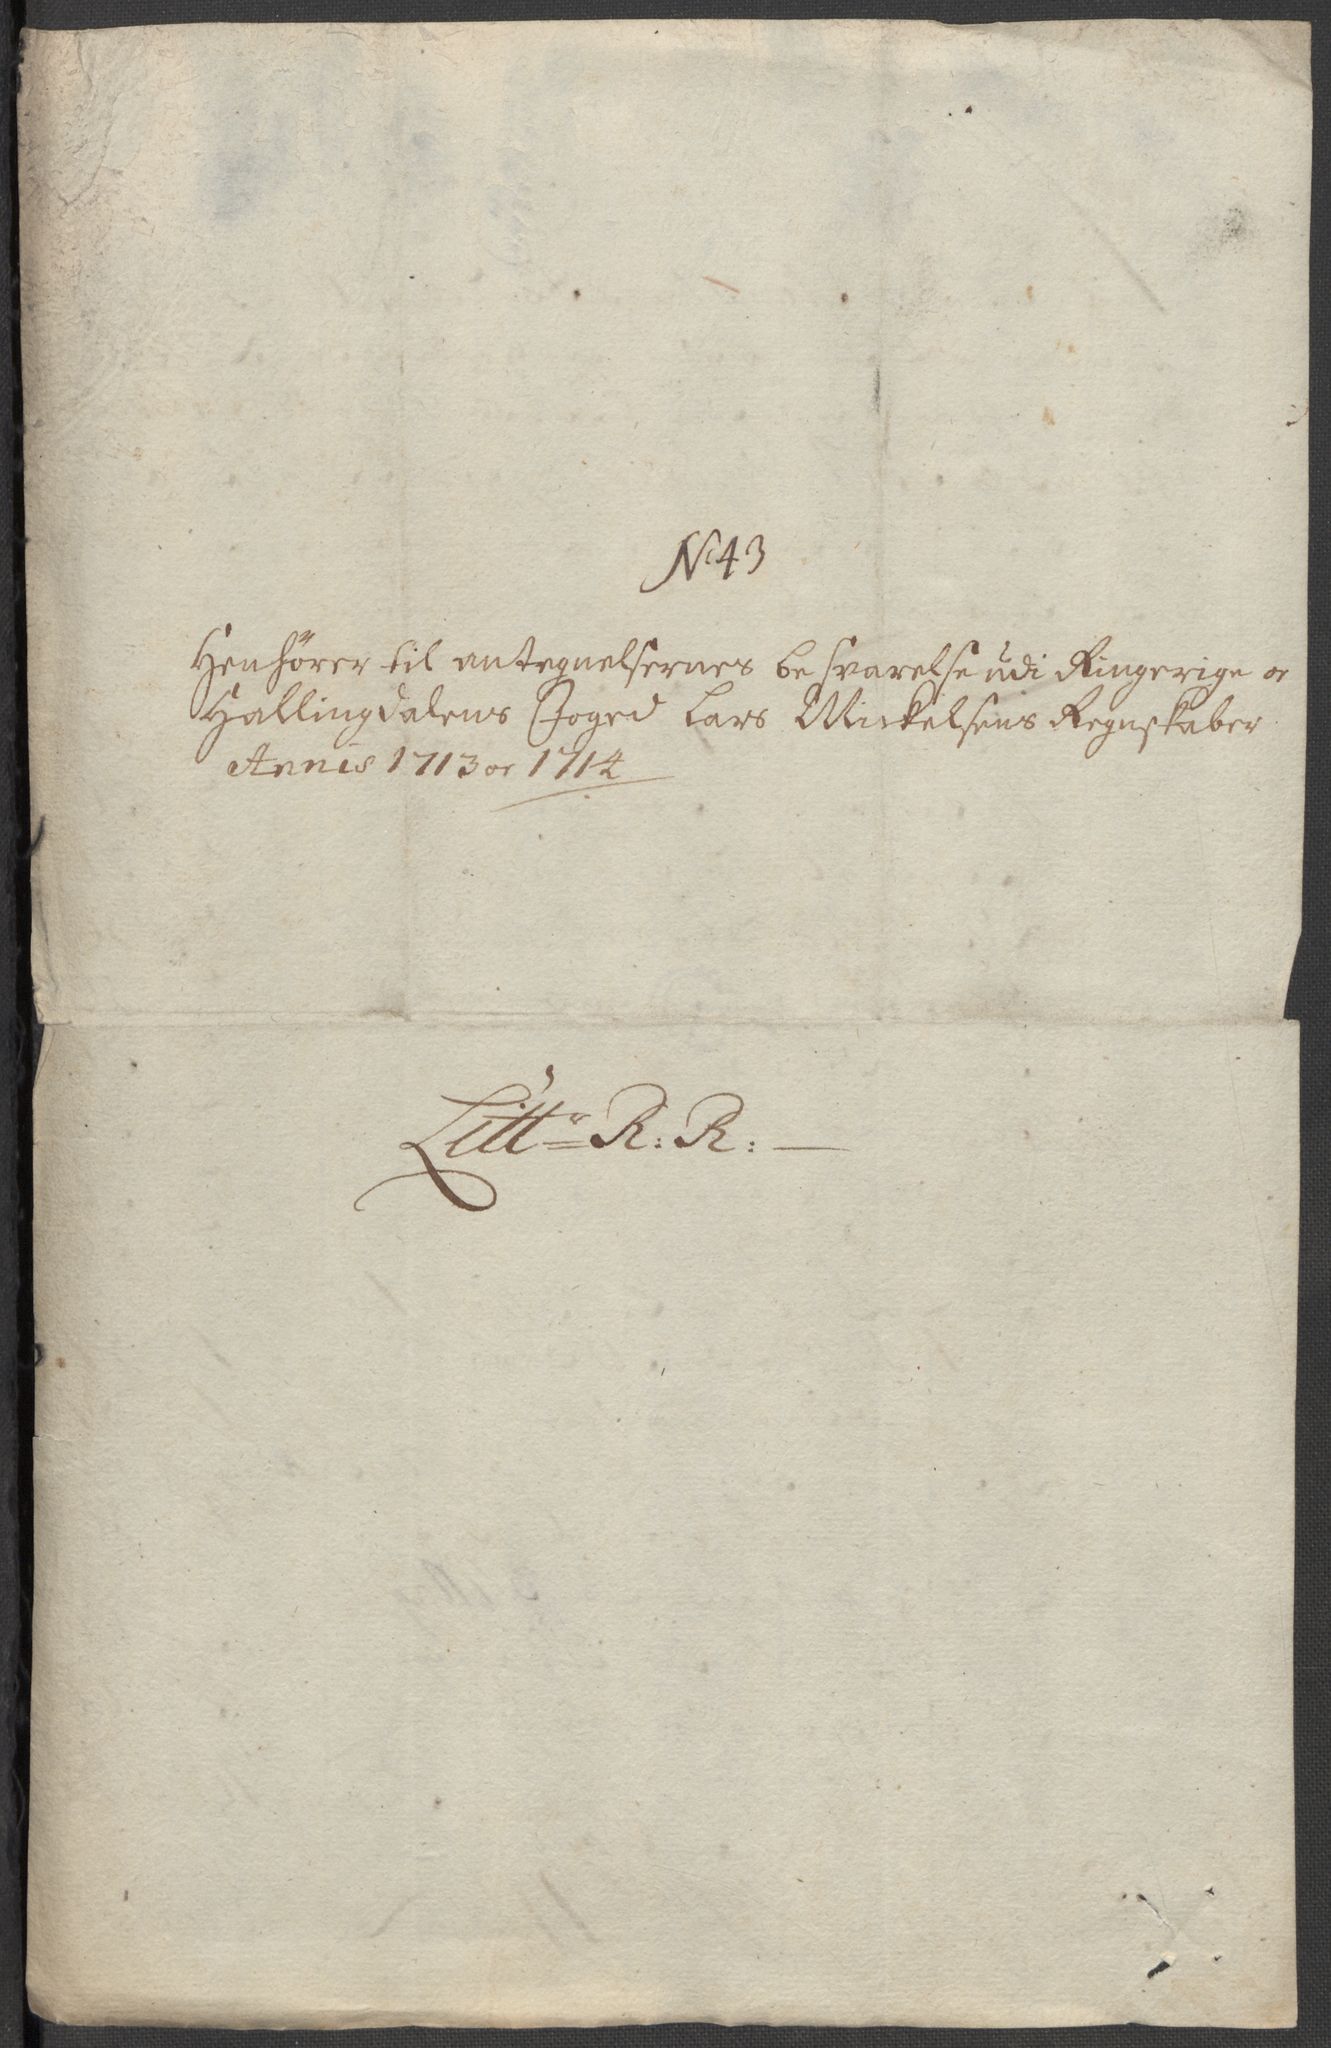 No 43
Henhörer til antegnelsernes besvarelse udi Ringerige og
Hallingdalens Foged Lars Mickelsens Regnskaber
Annis 1713 og 1714
Littr R: R: